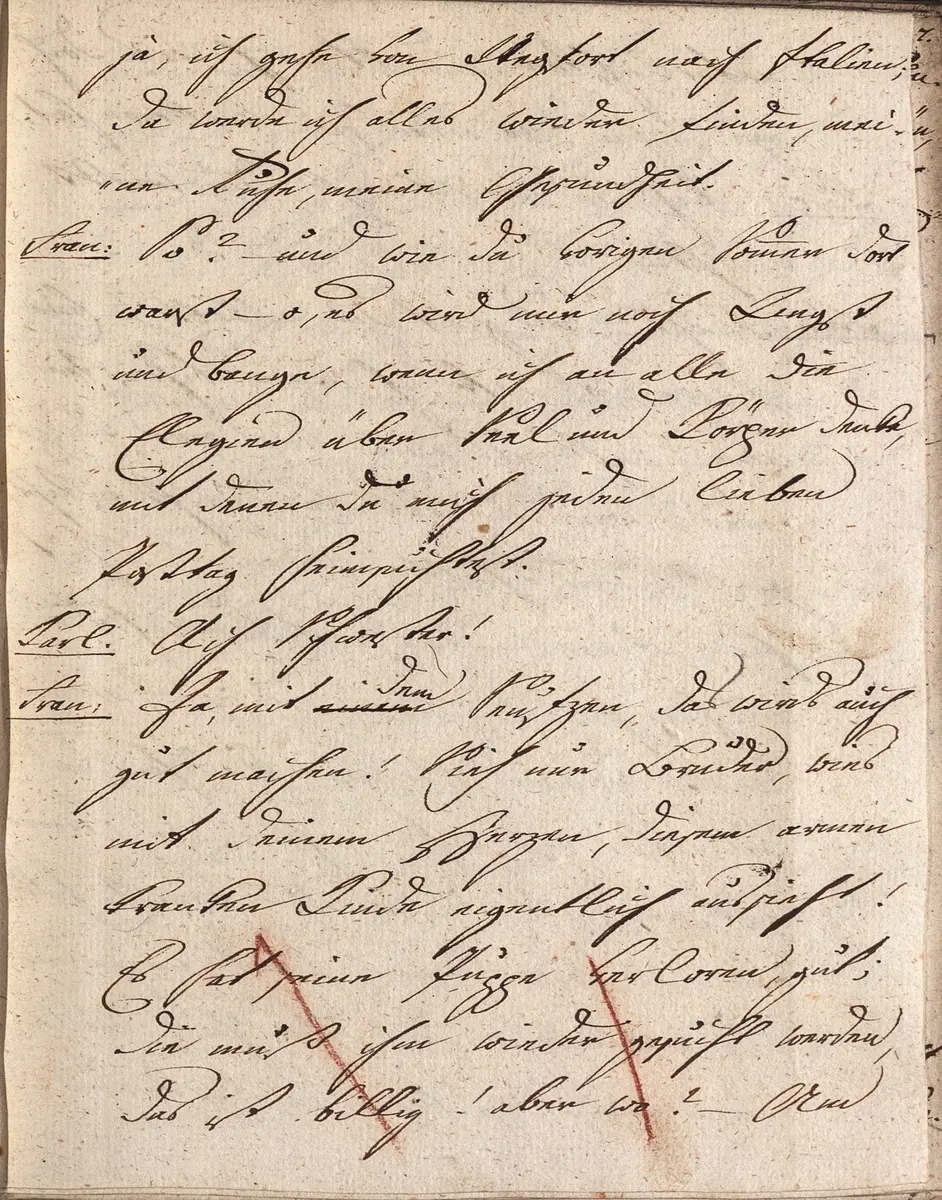 ja, ich gehe von Stegfort nach Italien;
da werde ich alles wieder finden, mei-
ne Ruhe, meine Gesundheit.
Fran: So? – und wie du vorigen Sommer dort
warst – o, es wird mir noch Angst
und bange, wenn ich an alle die
Elegien über Seel und Körper denke,
mit denen du mich jeden lieben
Posttag heimsuchtest.
Carl. Ach Schwester!
Fran: Ja, mit dem Seufzen, das wirds auch
gut machen! Sieh nur Bruder, wies
mit deinem Herzen, diesem armen
kranken Kinde eigentlich aussieht!
Es hat seine Puppe verloren, gut;
die muß ihm wieder gesucht werden,
das ist billig! aber wo? – Um